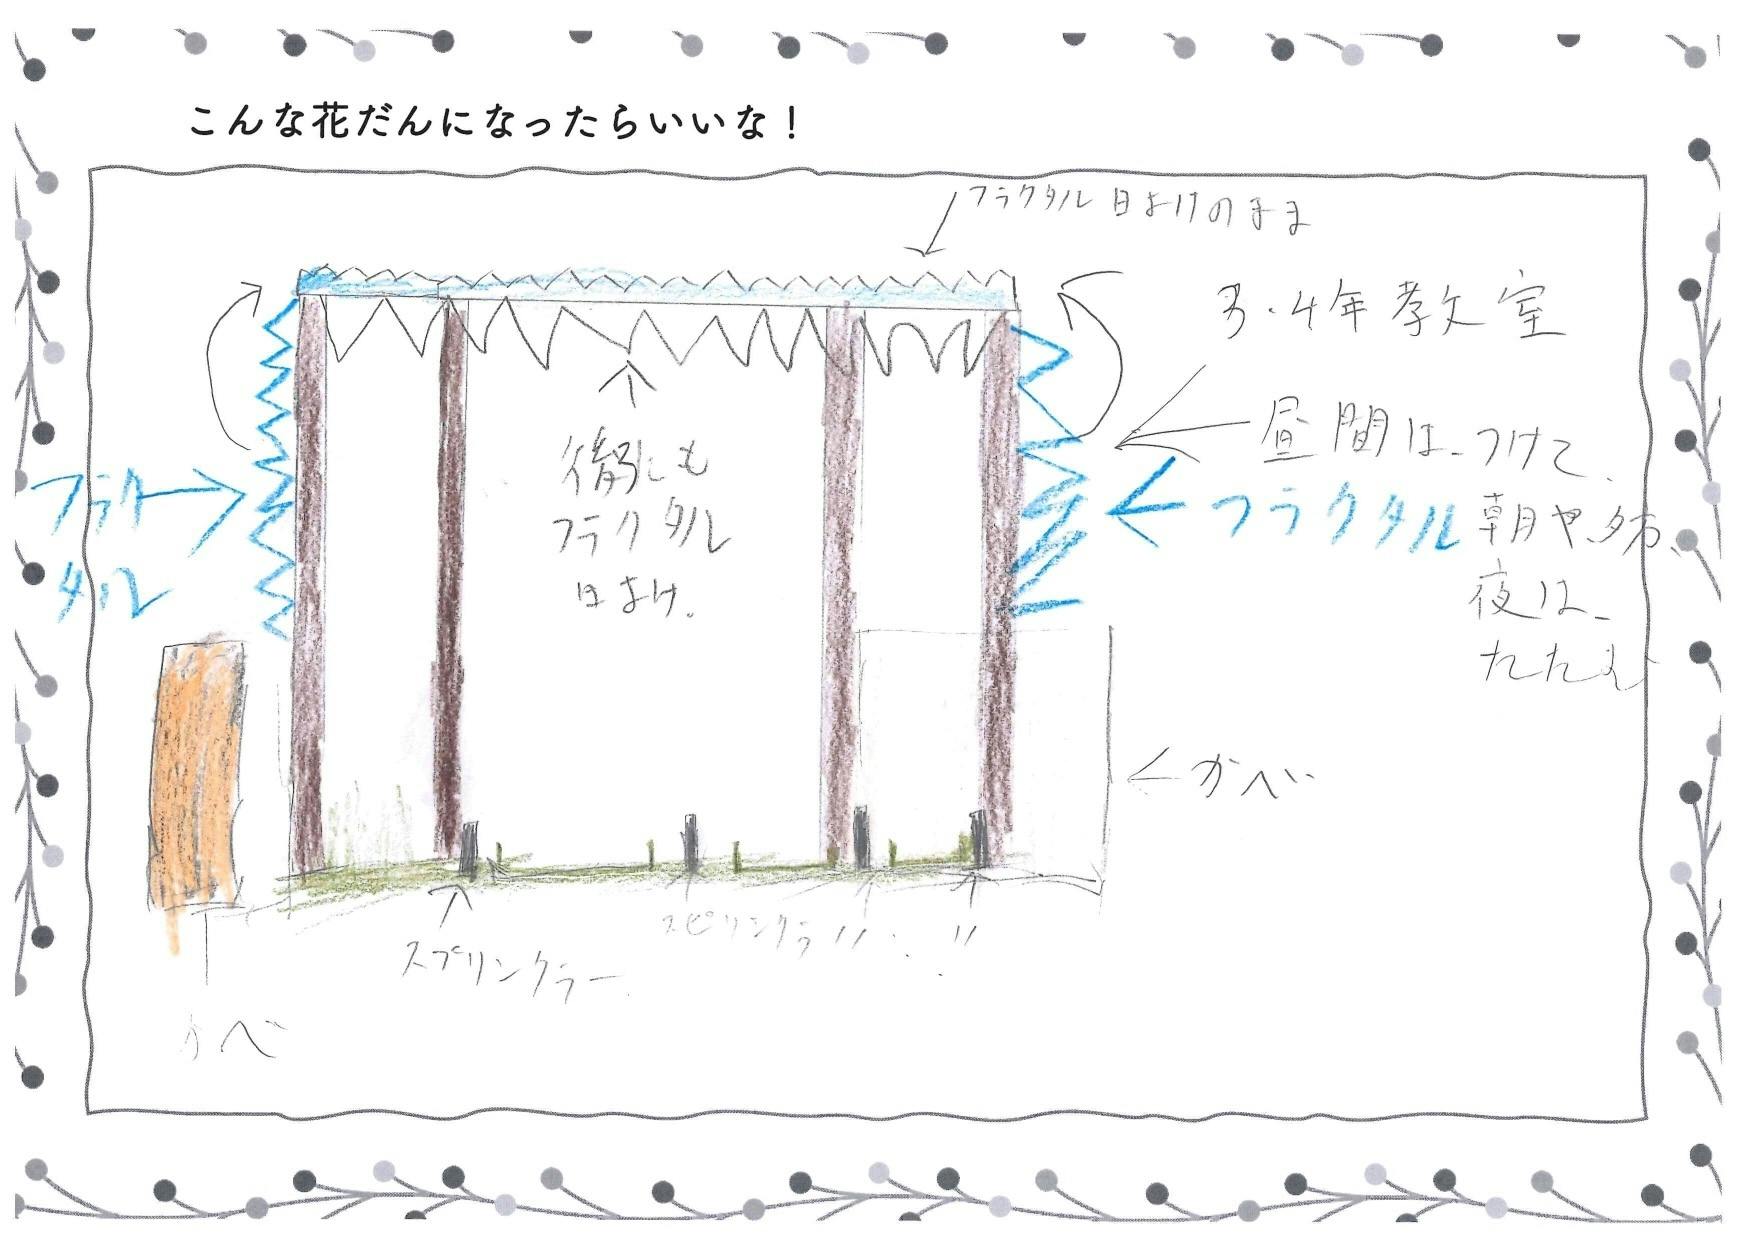 こんな花だんになったらいいな！
フラクタル日よけのまま
3・4年教室
昼間は、つけて、
朝や夕方、
夜は、
たたむ
フラクタル
フラク
タル
後ろにも
フラクタル
日よけ。
←かべ
スプリンクラー
スピリンクラ 〃 〃
かべ